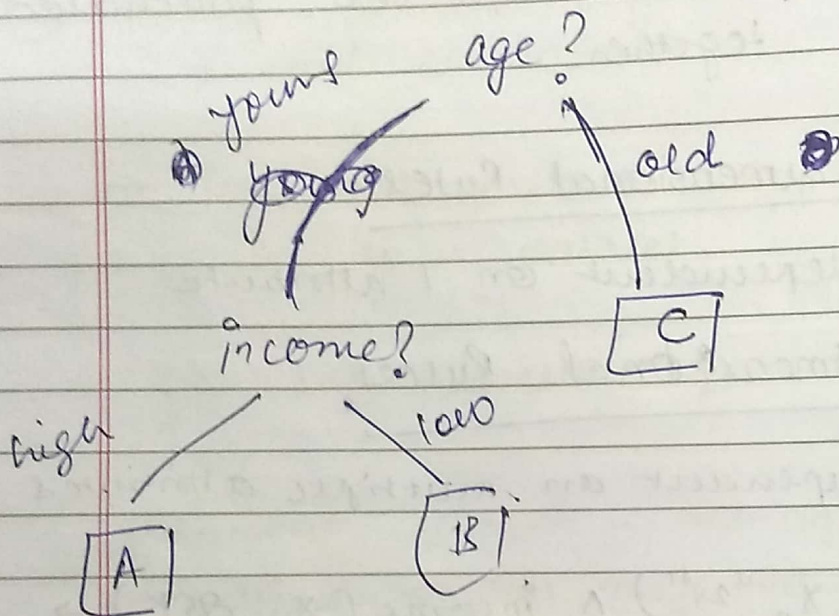 age?
young
young
old
income?
C
high
low
A
B